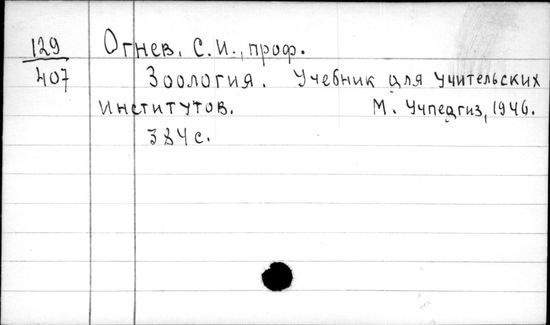 129
407
Огнев, С.И., проф.
Зоология. Учебник для учительских
институтов. М. Учпедгиз, 1946.
384 с.